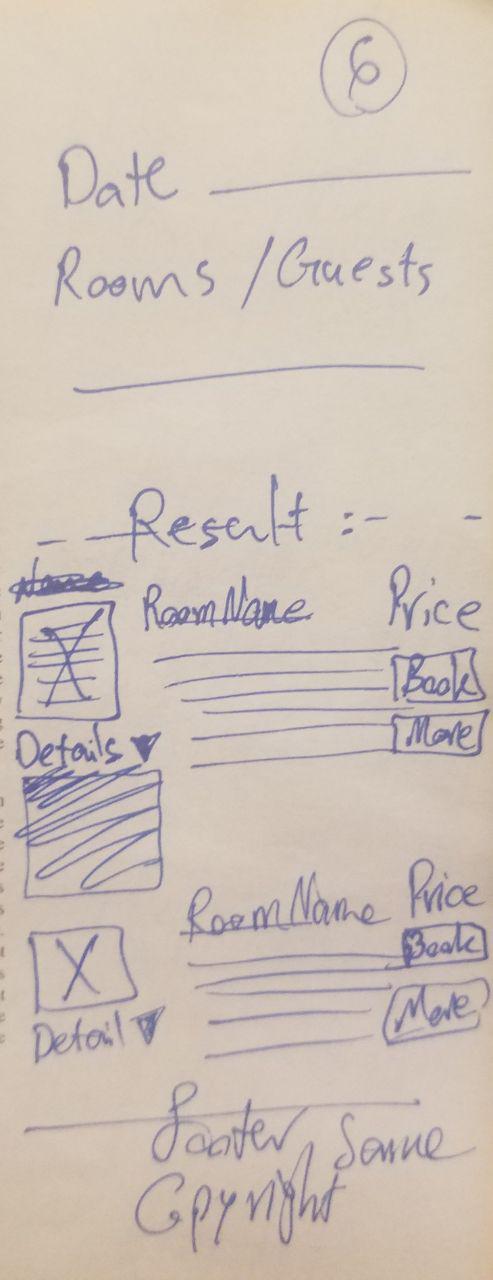 6
Date
Rooms / Guests
Result :-
RoomName Price
Book
More
Details
RoomName Price
Book
More
Detail
Footer Same
Copyright